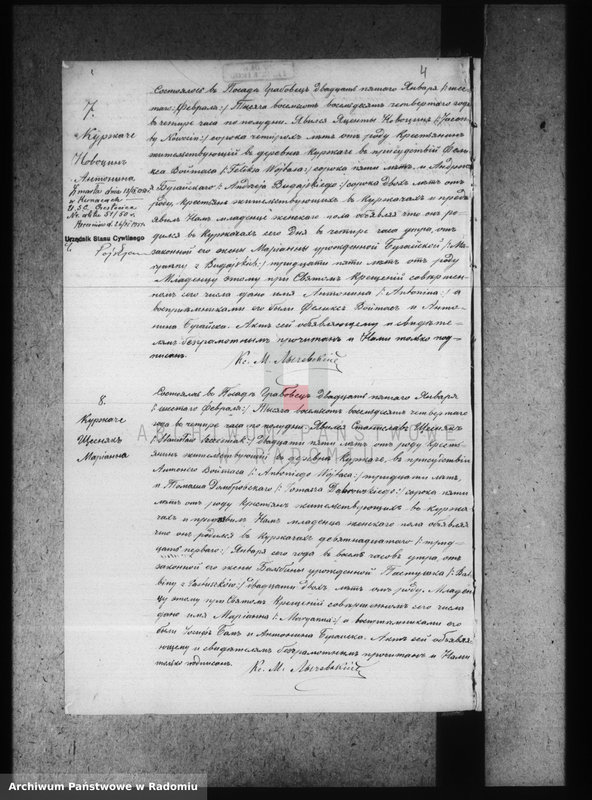 4
7.
Куркаче
Новоцин
Антонина
Urzędnik Stanu Cywilnego
Состоялось въ Посадѣ Грабовецъ двадцать пятаго Января /: шес-
таго: Февраля :/ Тысяча восемьсотъ восемьдесятъ четвертаго года
въ четыре часа по полудни. Явился Яцентій Новоцинъ
сорока четырехъ лѣтъ отъ роду крестьянинъ
жительствующій въ деревнѣ Куркаче въ присутствіи Фелик-
са Войтаса /: Feliksa Wójtasa :/ сорока пяти лѣтъ и Андрея
Бугайскаго /: Andrzeja Bugajskiego :/ сорока двохъ лѣтъ отъ
роду, крестьянъ жительствующихъ въ Куркачахъ и предъ-
явилъ Намъ младенца женскаго пола объявляя что онъ ро-
дился въ Куркачахъ сего дня въ четыре часа утра, отъ
законной его жены Маріанны урожденной Бугайской /: Ma-
ryanny z Bugajskich :/ тридцати пяти лѣтъ отъ роду
Младенцу этому при Святомъ Крещеніи совершен-
номъ сего числа дано имя Антонина /: Antonina :/ а
воспріемниками его были Феликсъ Войтасъ и Анто-
нина Бугайски. Актъ сей объявляющему и свидѣте-
лямъ безграмотнымъ прочитанъ и Нами только под-
писанъ.
Кс. М. Лычевскій
8.
Куркаче
Щеснякъ
Маріанна
Состоялось въ Посадѣ Грабовецъ двадцать пятаго Января
/: шестаго Февраля :/ Тысяча восемьсотъ восемьдесятъ четвертаго
года въ четыре часа по полудни. Явился Станиславъ Щеснякъ
двадцати пяти лѣтъ отъ роду кресть-
янинъ жительствующій въ деревнѣ Куркаче, въ присутствіи
Антонего Войтаса /: Antoniego Wójtasa :/ тридцати лѣтъ,
и Томаша Домбровскаго /: Tomasza Dąbrowskiego :/ сорока пяти
лѣтъ отъ роду крестьянъ жительствующихъ въ Курка-
чахъ и предъявилъ Намъ младенца женскаго пола объявляя
что онъ родился въ Куркачахъ девятнадцатаго /: трид-
цать перваго :/ Января сего года въ восемь часовъ утра, отъ
законной его жены Балбины урожденной Пастушка /: Bal-
biny z :/ двадцати двохъ лѣтъ отъ роду. Младен-
цу этому при Святомъ Крещеніи совершенномъ сего числа
дано имя Маріанна /: Maryanna :/ а воспріемниками его
были Іосифъ и Антонина Бугайска. Актъ сей объявля-
ющему и свидѣтелямъ безграмотнымъ прочитанъ и Нами
только подписанъ.
Кс. М. Лычевскій
ARCHIWUM PAŃSTWOWE
W RADOMIU
Archiwum Państwowe w Radomiu